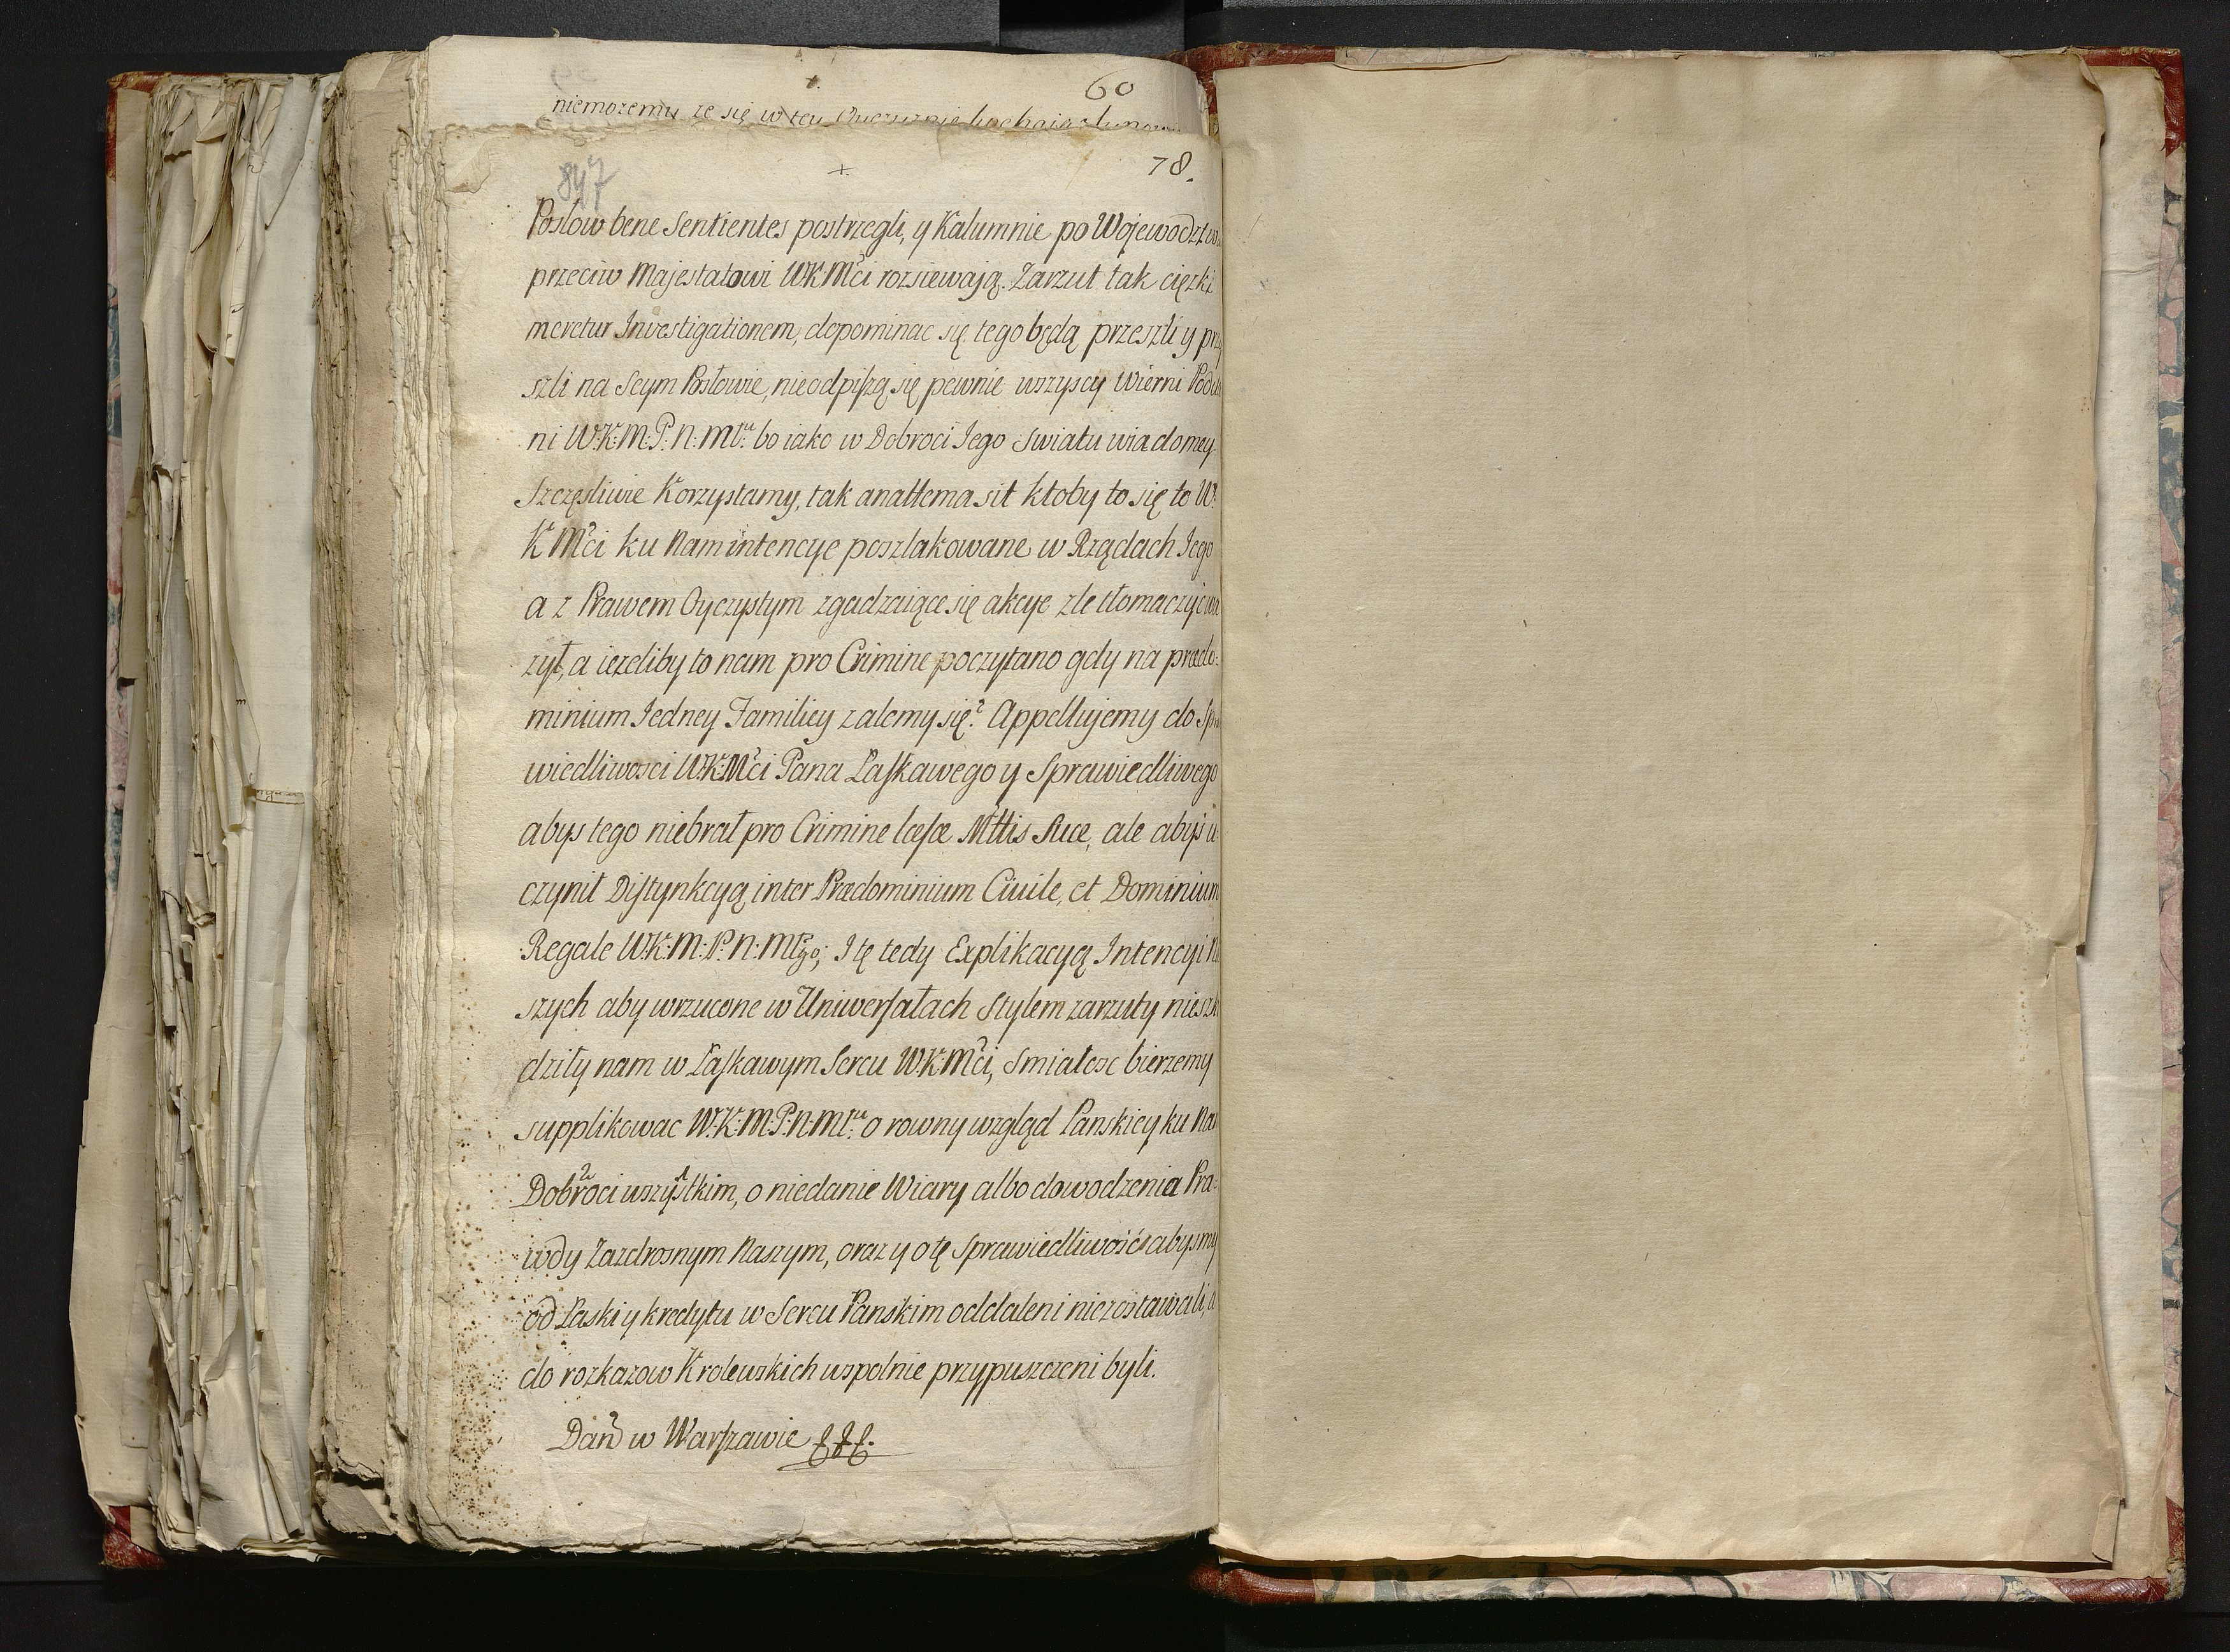 60
niemozemy ze się w tey
847
+.
78.
Posłow bene Sentientes postrzegli, y Kalumnie po Wojewodztw
przeciw Majestatowi W.K.Mci rozsiewają. Zarzut tak cięzki
meretur Investigationem, dopominac się tego będą przeszli y prz
szli na Seym Posłowie, nieodpiszą się pewnie wszyscy Wierni Podd
ni W:K:M:P:N:Młu: bo iako w Dobroci Jego Swiatu wiadomey
Szczęsliwie Korzystamy, tak anathema sit ktoby to się to W.
K Mci ku Nam intencye poszlakowane w Rządach Jego
a z Prawem Oyczystym zgadzaiące się akcye zle tłomaczyć wa
zył, a iezeliby to nam pro Crimine poczytano gdy na prædo:
minium Jedney Familiey zalemy się? Appellujemy do Spra
wiedliwosci W:K:Mci Pana Łaskawego y Sprawiedliwego
abys tego niebrał pro Crimine læsæ Mttis Suæ, ale abyś u:
czynił Distynkcyą inter Prædominium Civile, et Dominium
Regale W:K:M:P:N:Młgo; I tę tedy Explikacyą Intencyi Na
szych aby wrzucone w Uniwersałach Stylem zarzuty nieszk
dziły nam w Łaskawym Sercu W:K:Mci, Smiałosc bierzemy
supplikowac W:K:M:P:N:Młu: o rowny wzgląd Panskiey ku Na
Dobroci wszystkim, o niedanie Wiary albo dowodzenia Pra:
wdy Zazdrosnym Naszym, oraz y o tę Sprawiedliwość abysmy
od Łaski y kredytu w Sercu Panskim oddaleni niezostawali, a
do rozkazow Krolewskich wspolnie przypuszczeni byli.
Dan w Warszawie